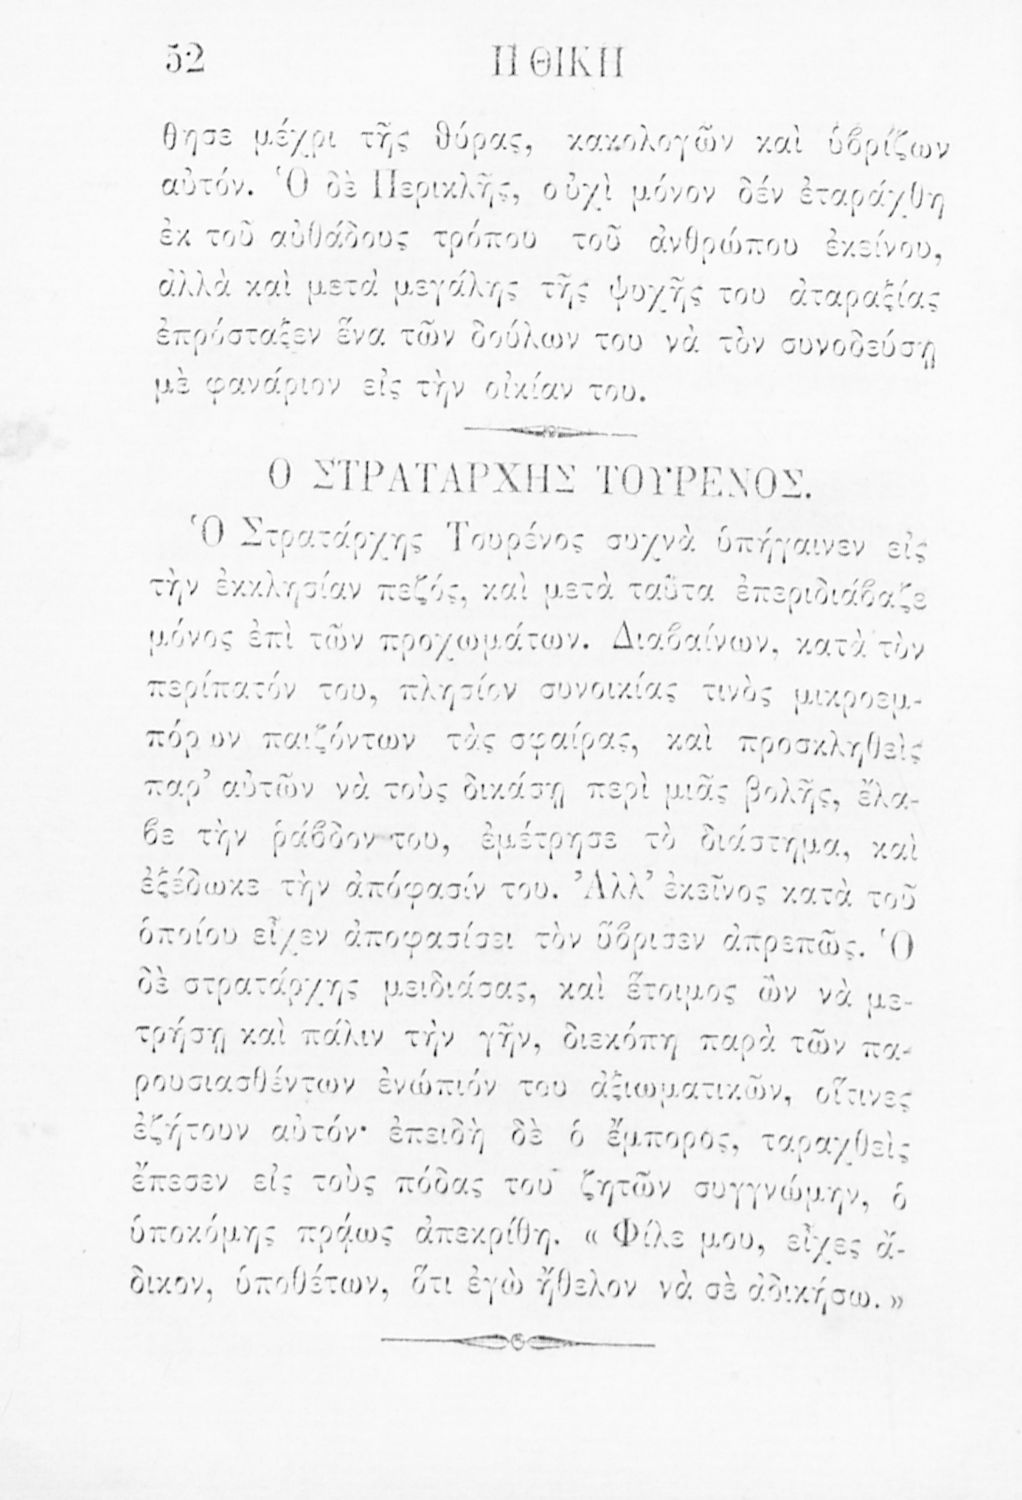 52 ΗΘΙΚΗ
θησε μέχρι τῆς θύρας, κακολογῶν καὶ ὑβρίζων
αὐτόν. Ὁ δὲ Περικλῆς, οὐχὶ μόνον δέν ἐταράχθη
ἐκ τοῦ αὐθάδους τρόπου τοῦ ἀνθρώπου ἐκείνου,
ἀλλὰ καὶ μετὰ μεγάλης τῆς ψυχῆς του ἀταραξίας
ἐπρόσταξεν ἕνα τῶν δούλων του νὰ τὸν συνοδεύσῃ
μὲ φανάριον εἰς τὴν οἰκίαν του.
Ο ΣΤΡΑΤΑΡΧΗΣ ΤΟΥΡΕΝΟΣ.
Ὁ Στρατάρχης Τουρένος συχνὰ ὑπήγαινεν εἰς
τὴν ἐκκλησίαν πεζός, καὶ μετὰ ταῦτα ἐπεριδιάβαζε
μόνος ἐπὶ τῶν προχωμάτων. Διαβαίνων, κατὰ τὸν
περίπατόν του, πλησίον συνοικίας τινὸς μικροεμ-
πόρων παιζόντων τὰς σφαίρας, καὶ προσκληθεὶς
παρ’ αὐτῶν νὰ τοὺς δικάσῃ περὶ μιᾶς βολῆς, ἔλα-
βε τὴν ῥάβδον του, ἐμέτρησε τὸ διάστημα, καὶ
ἐξέδωκε τὴν ἀπόφασίν του. Ἀλλ’ ἐκεῖνος κατὰ τοῦ
ὁποίου εἶχεν ἀποφασίσει τὸν ὕβρισεν ἀπρεπῶς. Ὁ
δὲ στρατάρχης μειδιάσας, καὶ ἕτοιμος ὢν νὰ με-
τρήσῃ καὶ πάλιν τὴν γῆν, διεκόπη παρὰ τῶν πα-
ρουσιασθέντων ἐνώπιόν του ἀξιωματικῶν, οἵτινες
ἐζήτουν αὐτόν· ἐπειδὴ δὲ ὁ ἔμπορος, ταραχθεὶς
ἔπεσεν εἰς τοὺς πόδας του ζητῶν συγγνώμην, ὁ
ὑποκόμης πράως ἀπεκρίθη. « Φίλε μου, εἶχες ἄ-
δικον, ὑποθέτων, ὅτι ἐγὼ ἤθελον νὰ σὲ ἀδικήσω. »